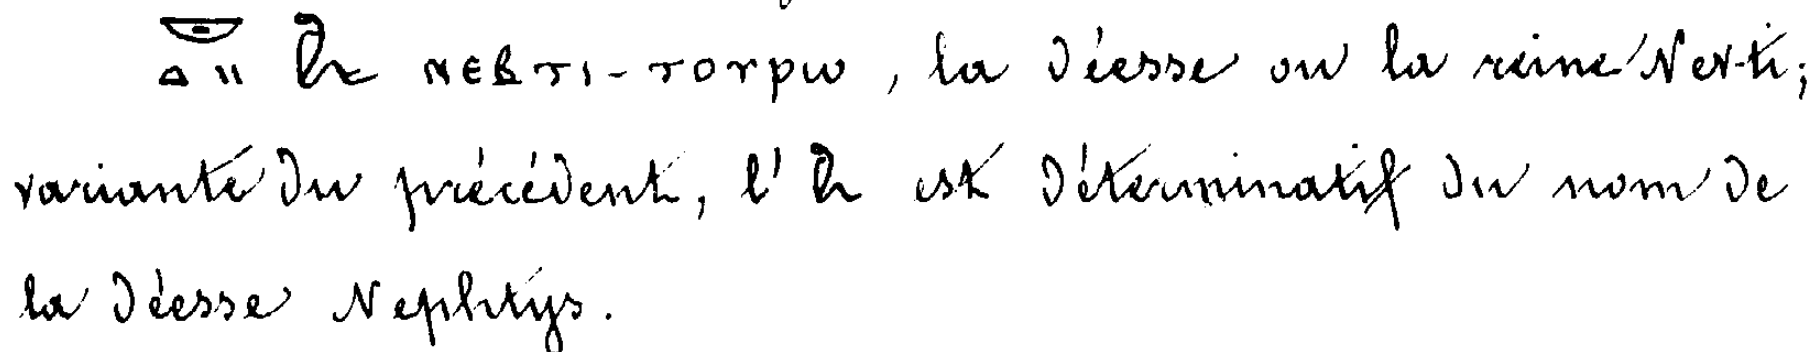 𓎱𓏏𓏭 𓆗 ⲛⲉⲃⲧⲓ-ⲧⲟⲩⲣⲱ, la déesse ou la reine Nev-ti;
variante du précédent, l'𓆗 est déterminatif du nom de
la déesse Nephtys.